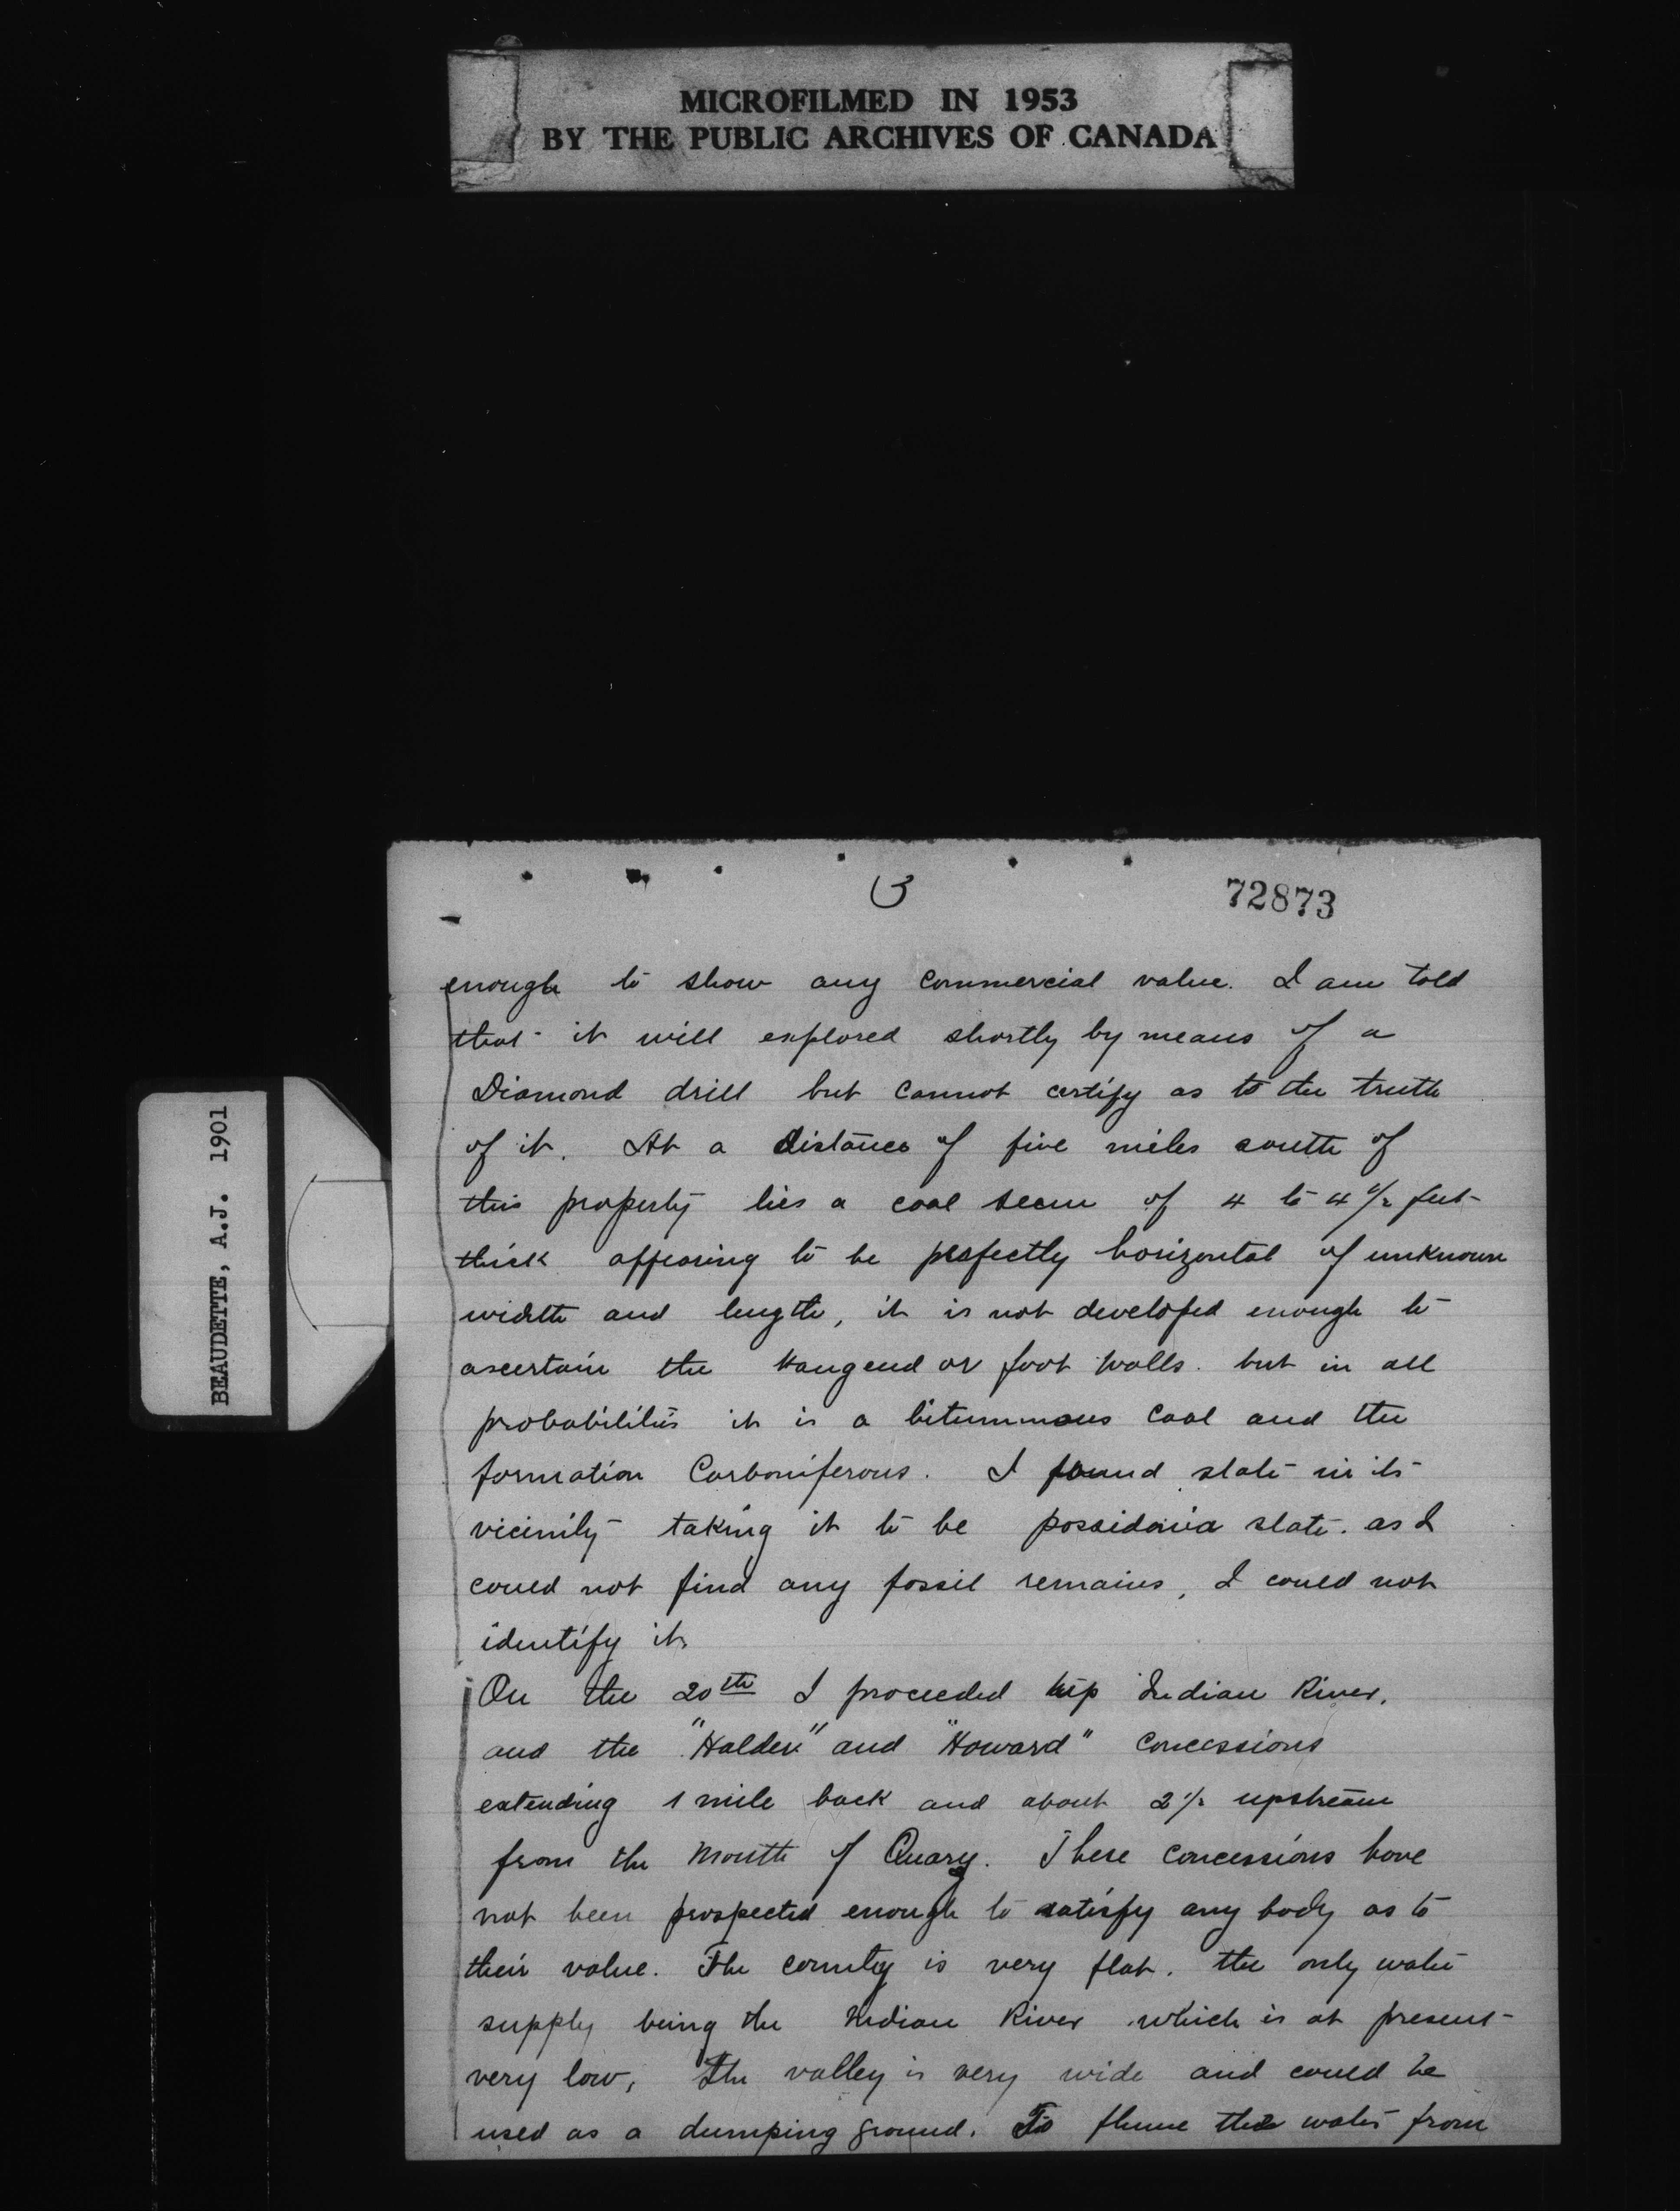 MICROFILMED IN 1953
BY THE PUBLIC ARCHIVES OF CANADA
BEAUDETTE, A.J. 1901
3
72873
enough to show any commercial value. I am told
that it will explored shortly by means of a
Diamond drill but cannot certify as to the truth
of it. At a distance of five miles south of
this property lies a coal seem of 4 to 4 1/2 feet
thick appearing to be perfectly horizontal of unknown
width and length, it is not developed enough to
ascertain the Hangend or foot walls. but in all
probabilities it is a bitummous coal and the
formation Carboniferous. I found slate in its
vicinity taking it to be possidonia slate. as I
could not find any fossil remains, I could not
identify it.
On the 20th I proceeded up Indian River,
and the "Halden" and "Howard" concessions
extending 1 mile back and about 2 1/2 upstream
from the Mouth of Quarz. These concessions have
not been prospected enough to satisfy any body as to
their value. The country is very flat. the only water
supply being the Indian River which is at present
very low, The valley is very wide and could be
used as a dumping ground. To flume the water from